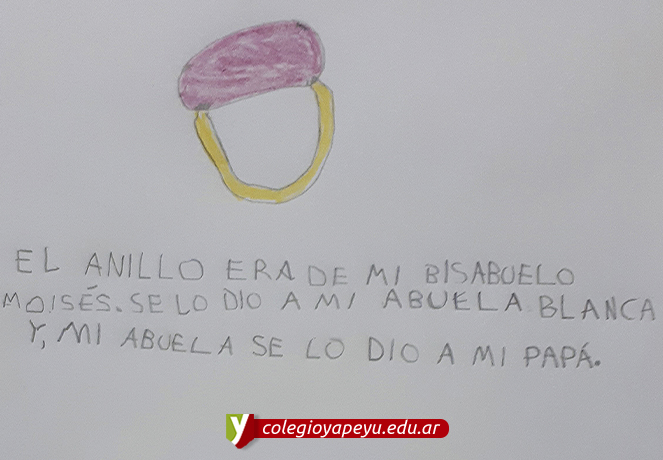 EL ANILLO ERA DE MI BISABUELO
MOISÉS. SE LO DIO A MI ABUELA BLANCA
Y, MI ABUELA SE LO DIO A MI PAPÁ.
y colegioyapeyu.edu.ar